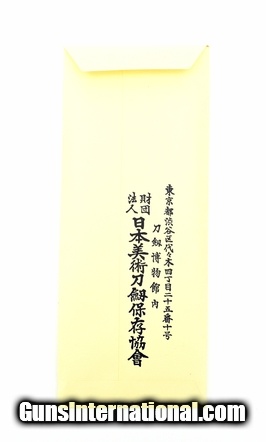 東京都渋谷区代々木四丁目二十五番十号
刀剱博物館内
財団法人
日本美術刀剱保存協會
GunsInternational.com